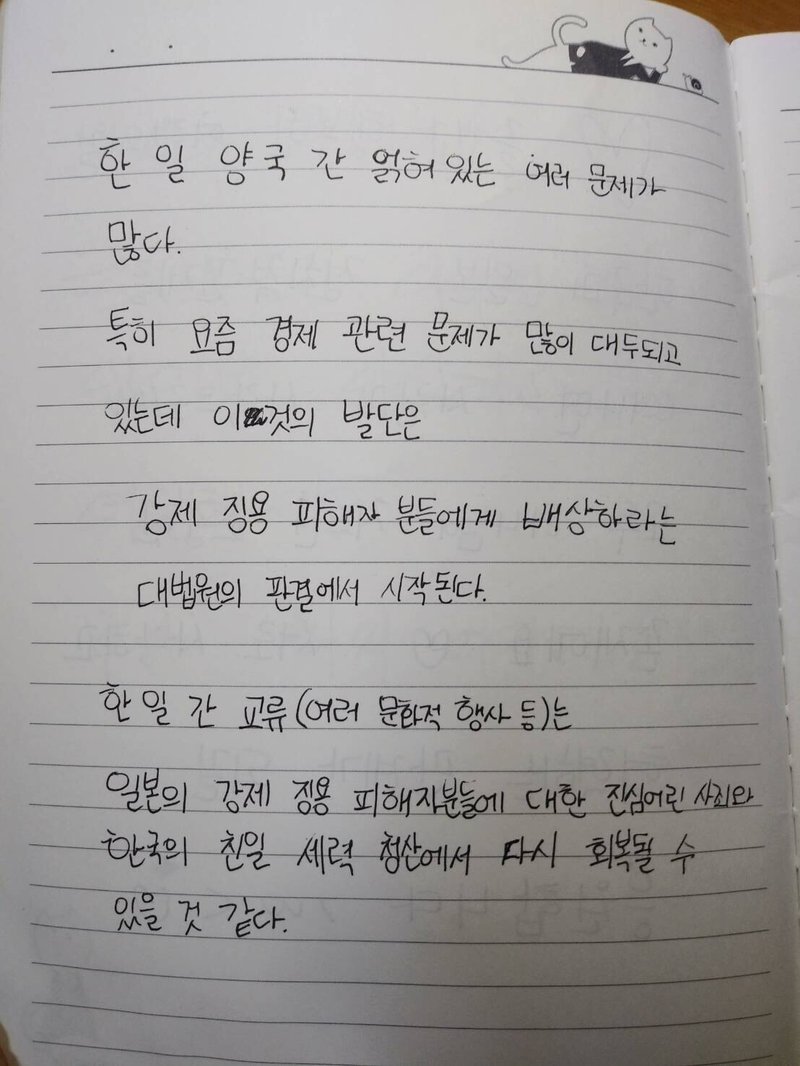 한 일 양국 간 얽혀있는 여러 문제가
많다.
특히 요즘 경제 관련 문제가 많이 대두되고
있는데 이것의 발단은
강제 징용 피해자 분들에게 배상하라는
대법원의 판결에서 시작된다.
한 일 간 교류(여러 문화적 행사 등)는
일본의 강제 징용 피해자분들에 대한 진심어린 사죄와
한국의 친일 세력 청산에서 다시 회복될 수
있을 것 같다.